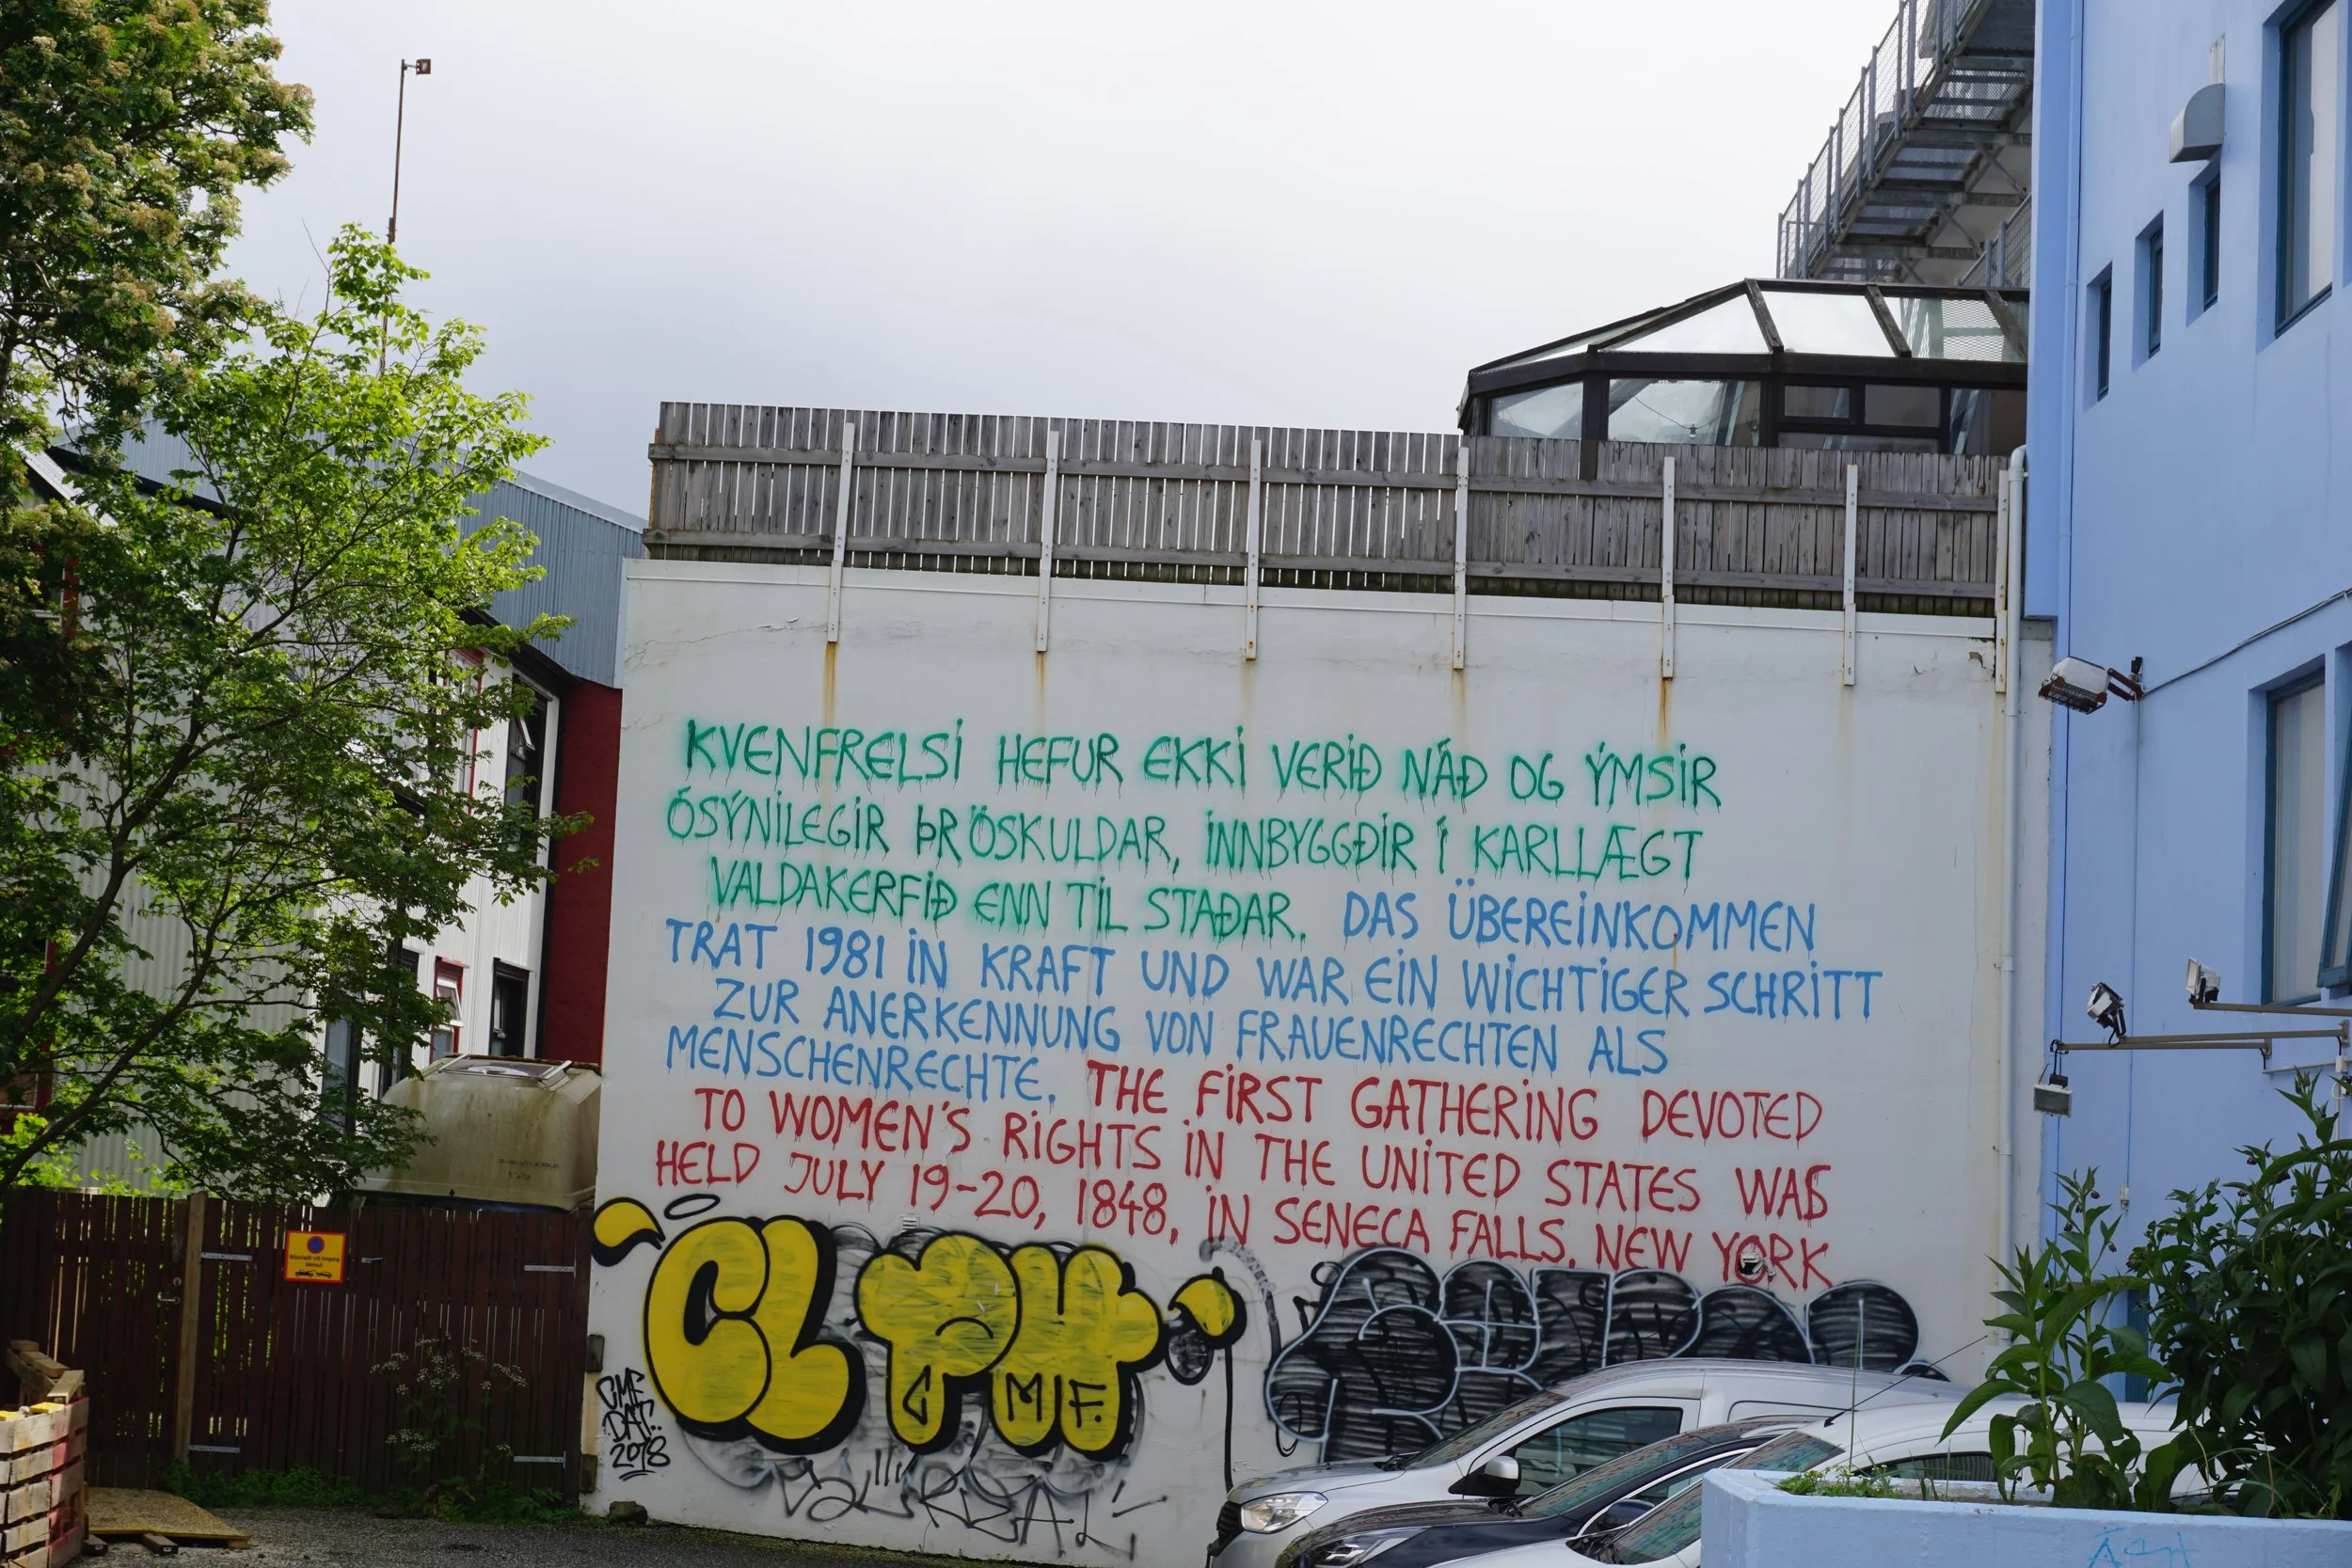 KVENFRELSI HEFUR EKKI VERIÐ NÁÐ OG ÝMSIR
ÓSÝNILEGIR ÞRÖSKULDAR, INNBYGGÐIR Í KARLLÆGT
VALDAKERFIÐ ENN TIL STAÐAR. DAS ÜBEREINKOMMEN
TRAT 1981 IN KRAFT UND WAR EIN WICHTIGER SCHRITT
ZUR ANERKENNUNG VON FRAUENRECHTEN ALS
MENSCHENRECHTE. THE FIRST GATHERING DEVOTED
TO WOMEN'S RIGHTS IN THE UNITED STATES WAS
HELD JULY 19-20, 1848, IN SENECA FALLS, NEW YORK
MF.
2018